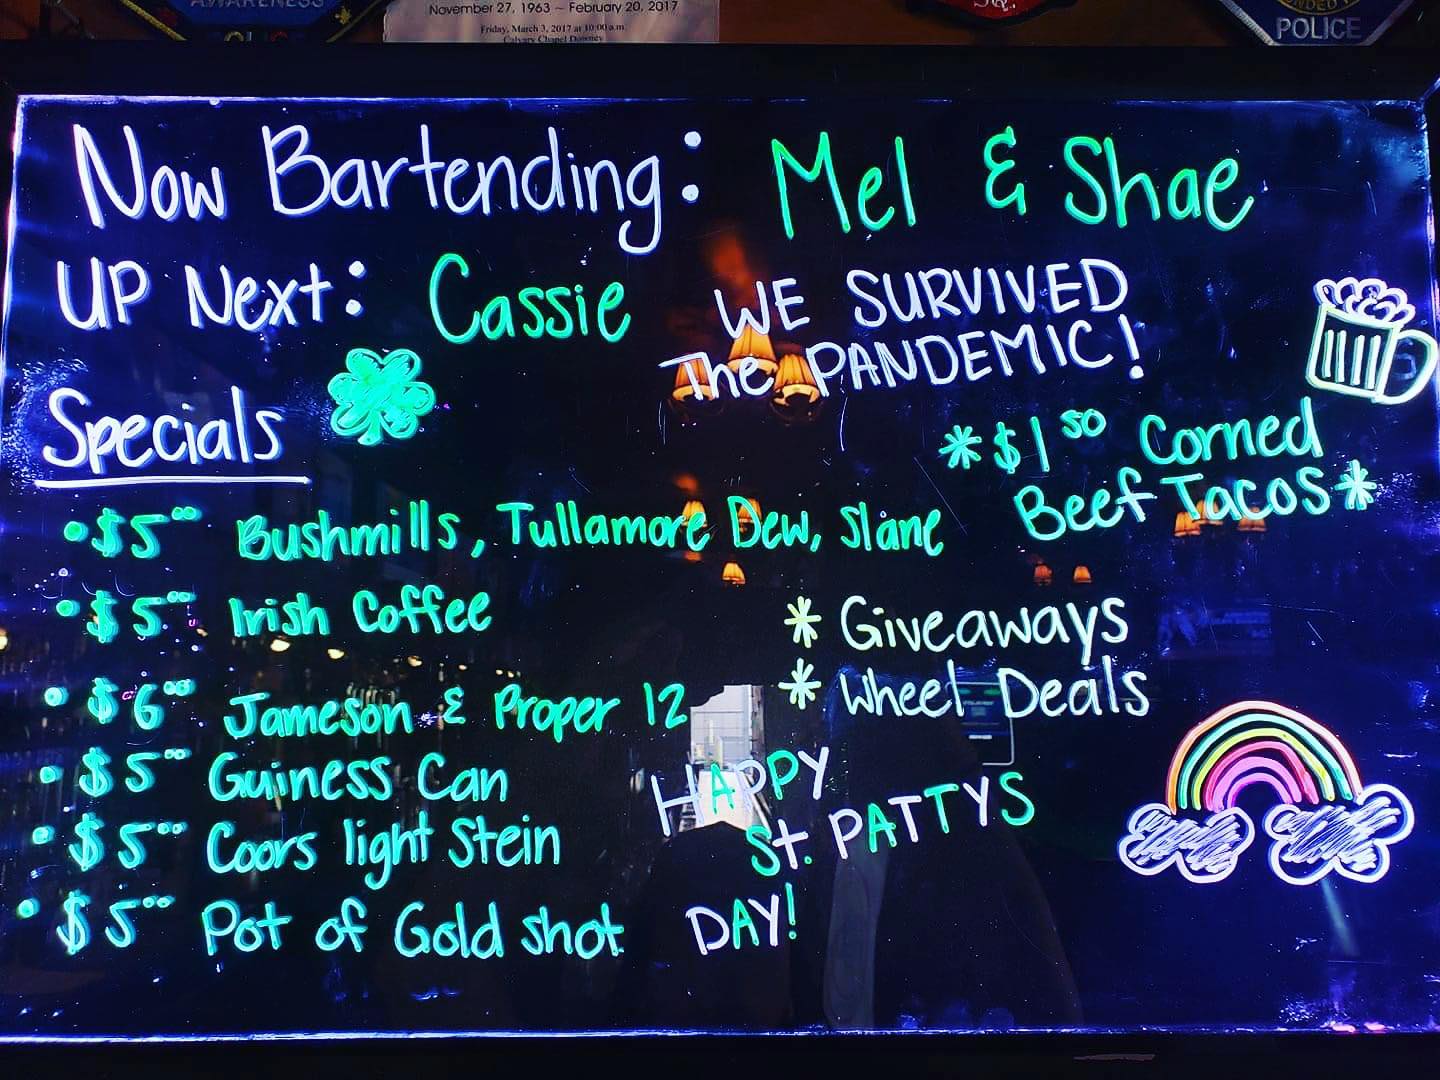 AWARENESS
POLICE
November 27, 1963 ~ February 20, 2017
Friday, March 3, 2017 at 10:00 a.m.
Calvary Chapel Downey
POLICE
Now Bartending: Mel & Shae
UP Next: Cassie
WE SURVIVED
The PANDEMIC!
Specials
*$1.50 Corned
Beef Tacos*
• $5.00 Bushmills, Tullamore Dew, Slane
• $5.00 Irish Coffee
* Giveaways
* Wheel Deals
• $6.00 Jameson & Proper 12
• $5.00 Guiness Can
• $5.00 Coors light Stein
• $5.00 Pot of Gold shot
HAPPY
St. PATTYS
DAY!